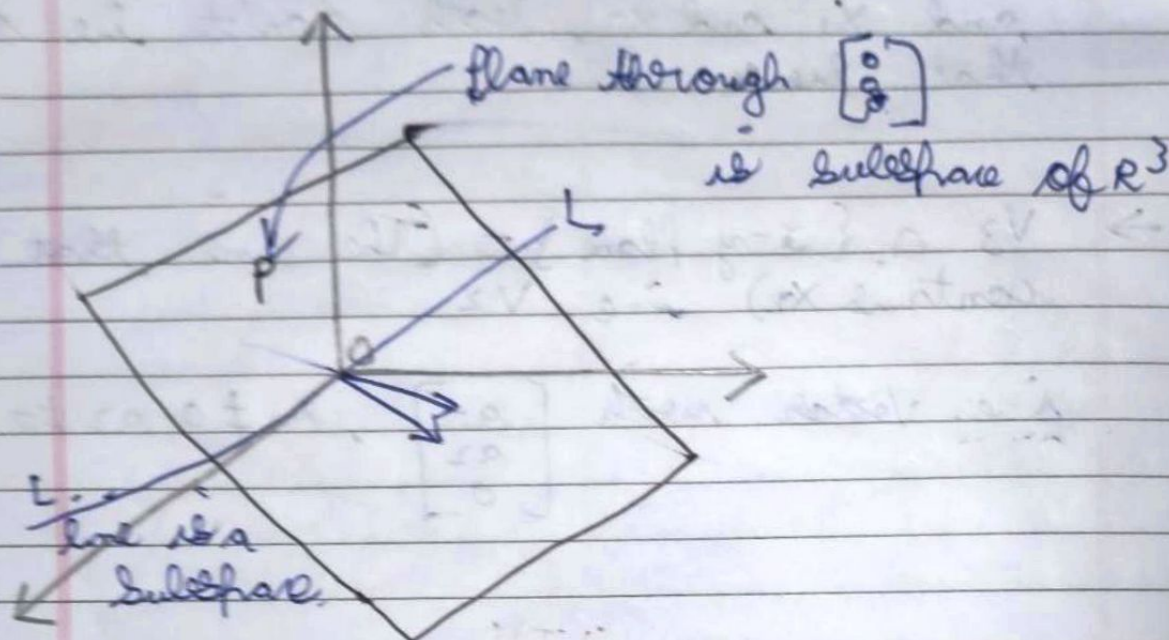 Plane through [0 0 0]
is subspace of R³
L
P
O
L
line is a
subspace.